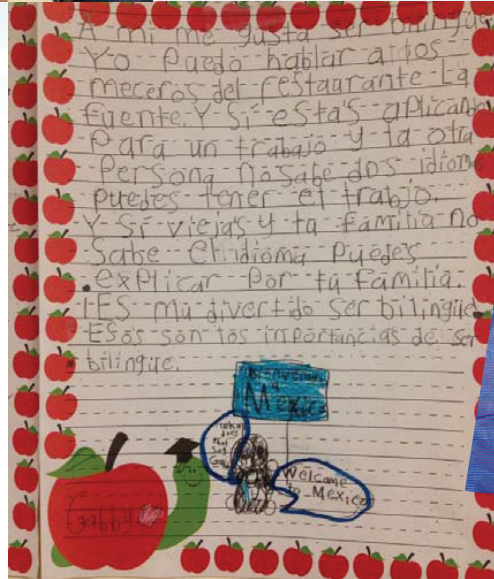 A mi me gusta ser bilingüe
Yo Puedo hablar a los
meceros del restaurante La
fuente. Y Sí estás aplicando
Para un trabajo y la otra
Persona no Sabe dos idioma
puedes tener el trabajo.
Y Sí viejas y tu familia no
Sabe el idioma Puedes
explicar Por tu familia.
IES mu divertido ser bilingüe.
Esos son los inportancias de ser
bilingüe.
Bienvenidos
a
Mexico
what
does
that
Say
Gabby
Welcome
to Mexico
Gabby